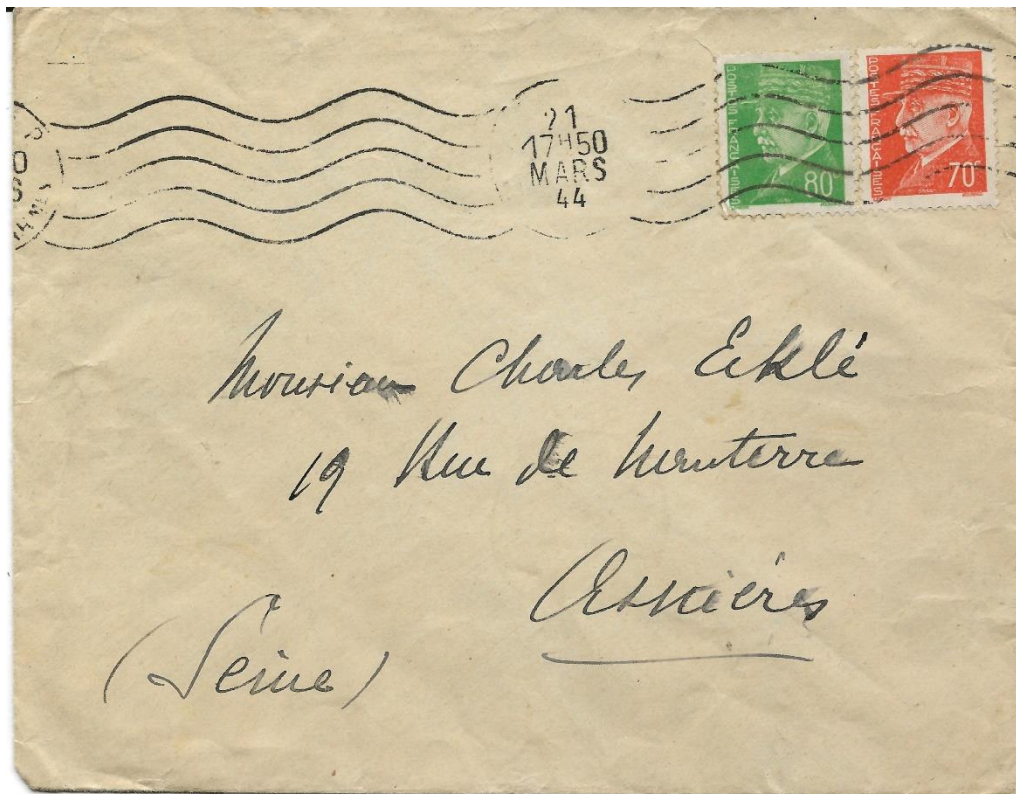 21
17H50
MARS
44
POSTES FRANÇAISES
80
POSTES FRANÇAISES
70c
Monsieur Charles Eklé
19 Rue de Nanterre
Asnières
(Seine)